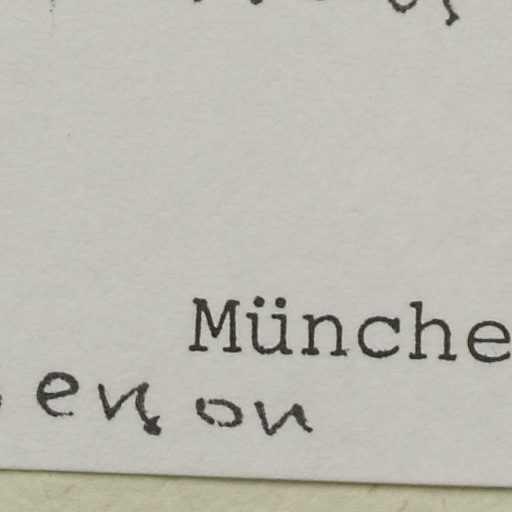 Münche
enon